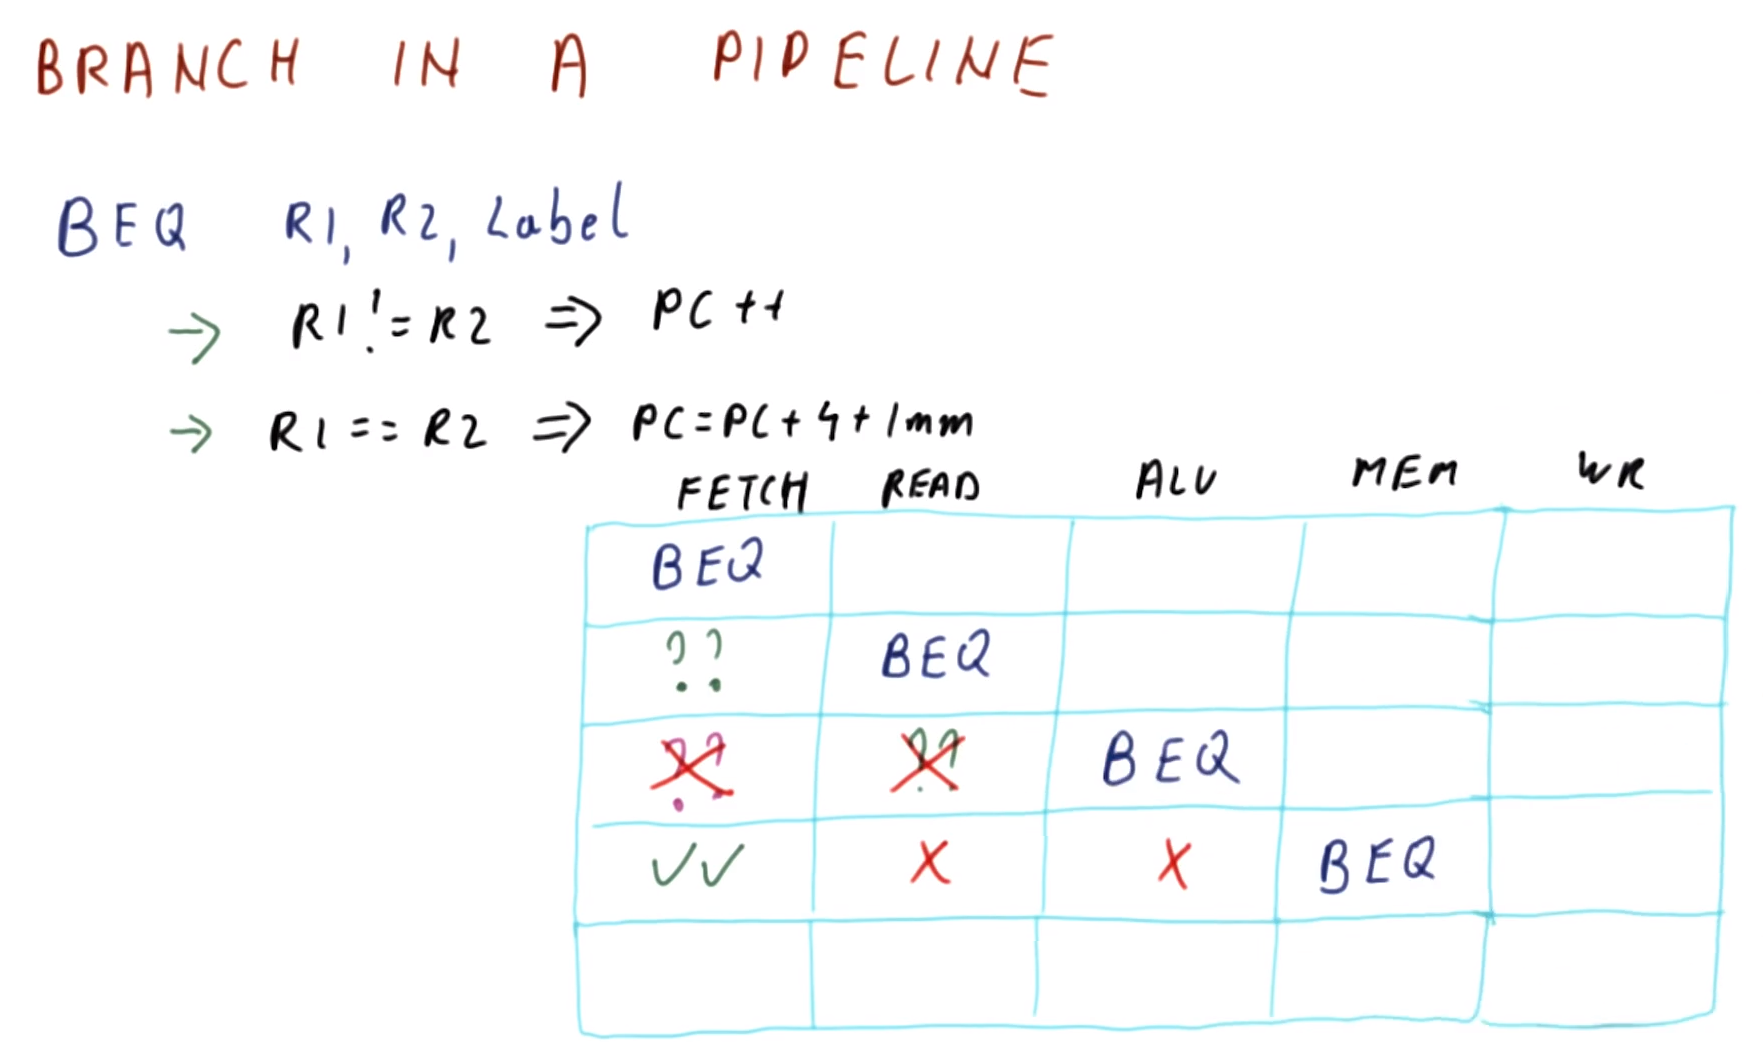 BRANCH IN A PIPELINE
BEQ R1, R2, Label
→ R1 != R2 ⇒ PC ++
→ R1 == R2 ⇒ PC = PC + 4 + Imm
FETCH READ ALU MEM WR
BEQ
?? BEQ
?? ?? BEQ
✓✓ X X BEQ